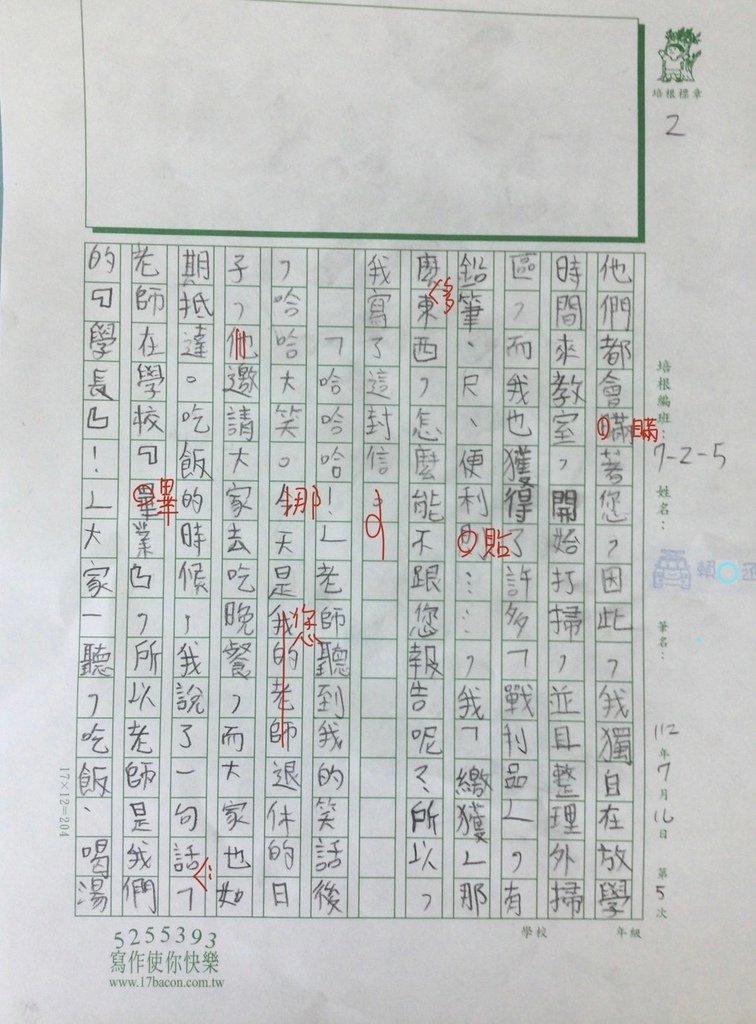 培根標章
2
培根編班：7-2-5 姓名： 筆名： 112年7月16日 第5次
他們都會瞞著您，因此，我獨自在放學
時間來教室，開始打掃，並且整理外掃
區，而我也獲得了許多「戰利品」，有
鉛筆、尺、便利貼……，我「繳獲」那
麼多東西，怎麼能不跟您報告呢？所以，
我寫了這封信。
「哈哈哈！」老師聽到我的笑話後
，哈哈大笑。那天是我的老師退休的日
您
子，他邀請大家去吃晚餐，而大家也如
期抵達。吃飯的時候，我說了一句話：「
老師在學校『畢業』，所以老師是我們
畢
的『學長』！」大家一聽，吃飯、喝湯
瞞
17×12=204
年級
學校
5255393
寫作使你快樂
www.17bacon.com.tw